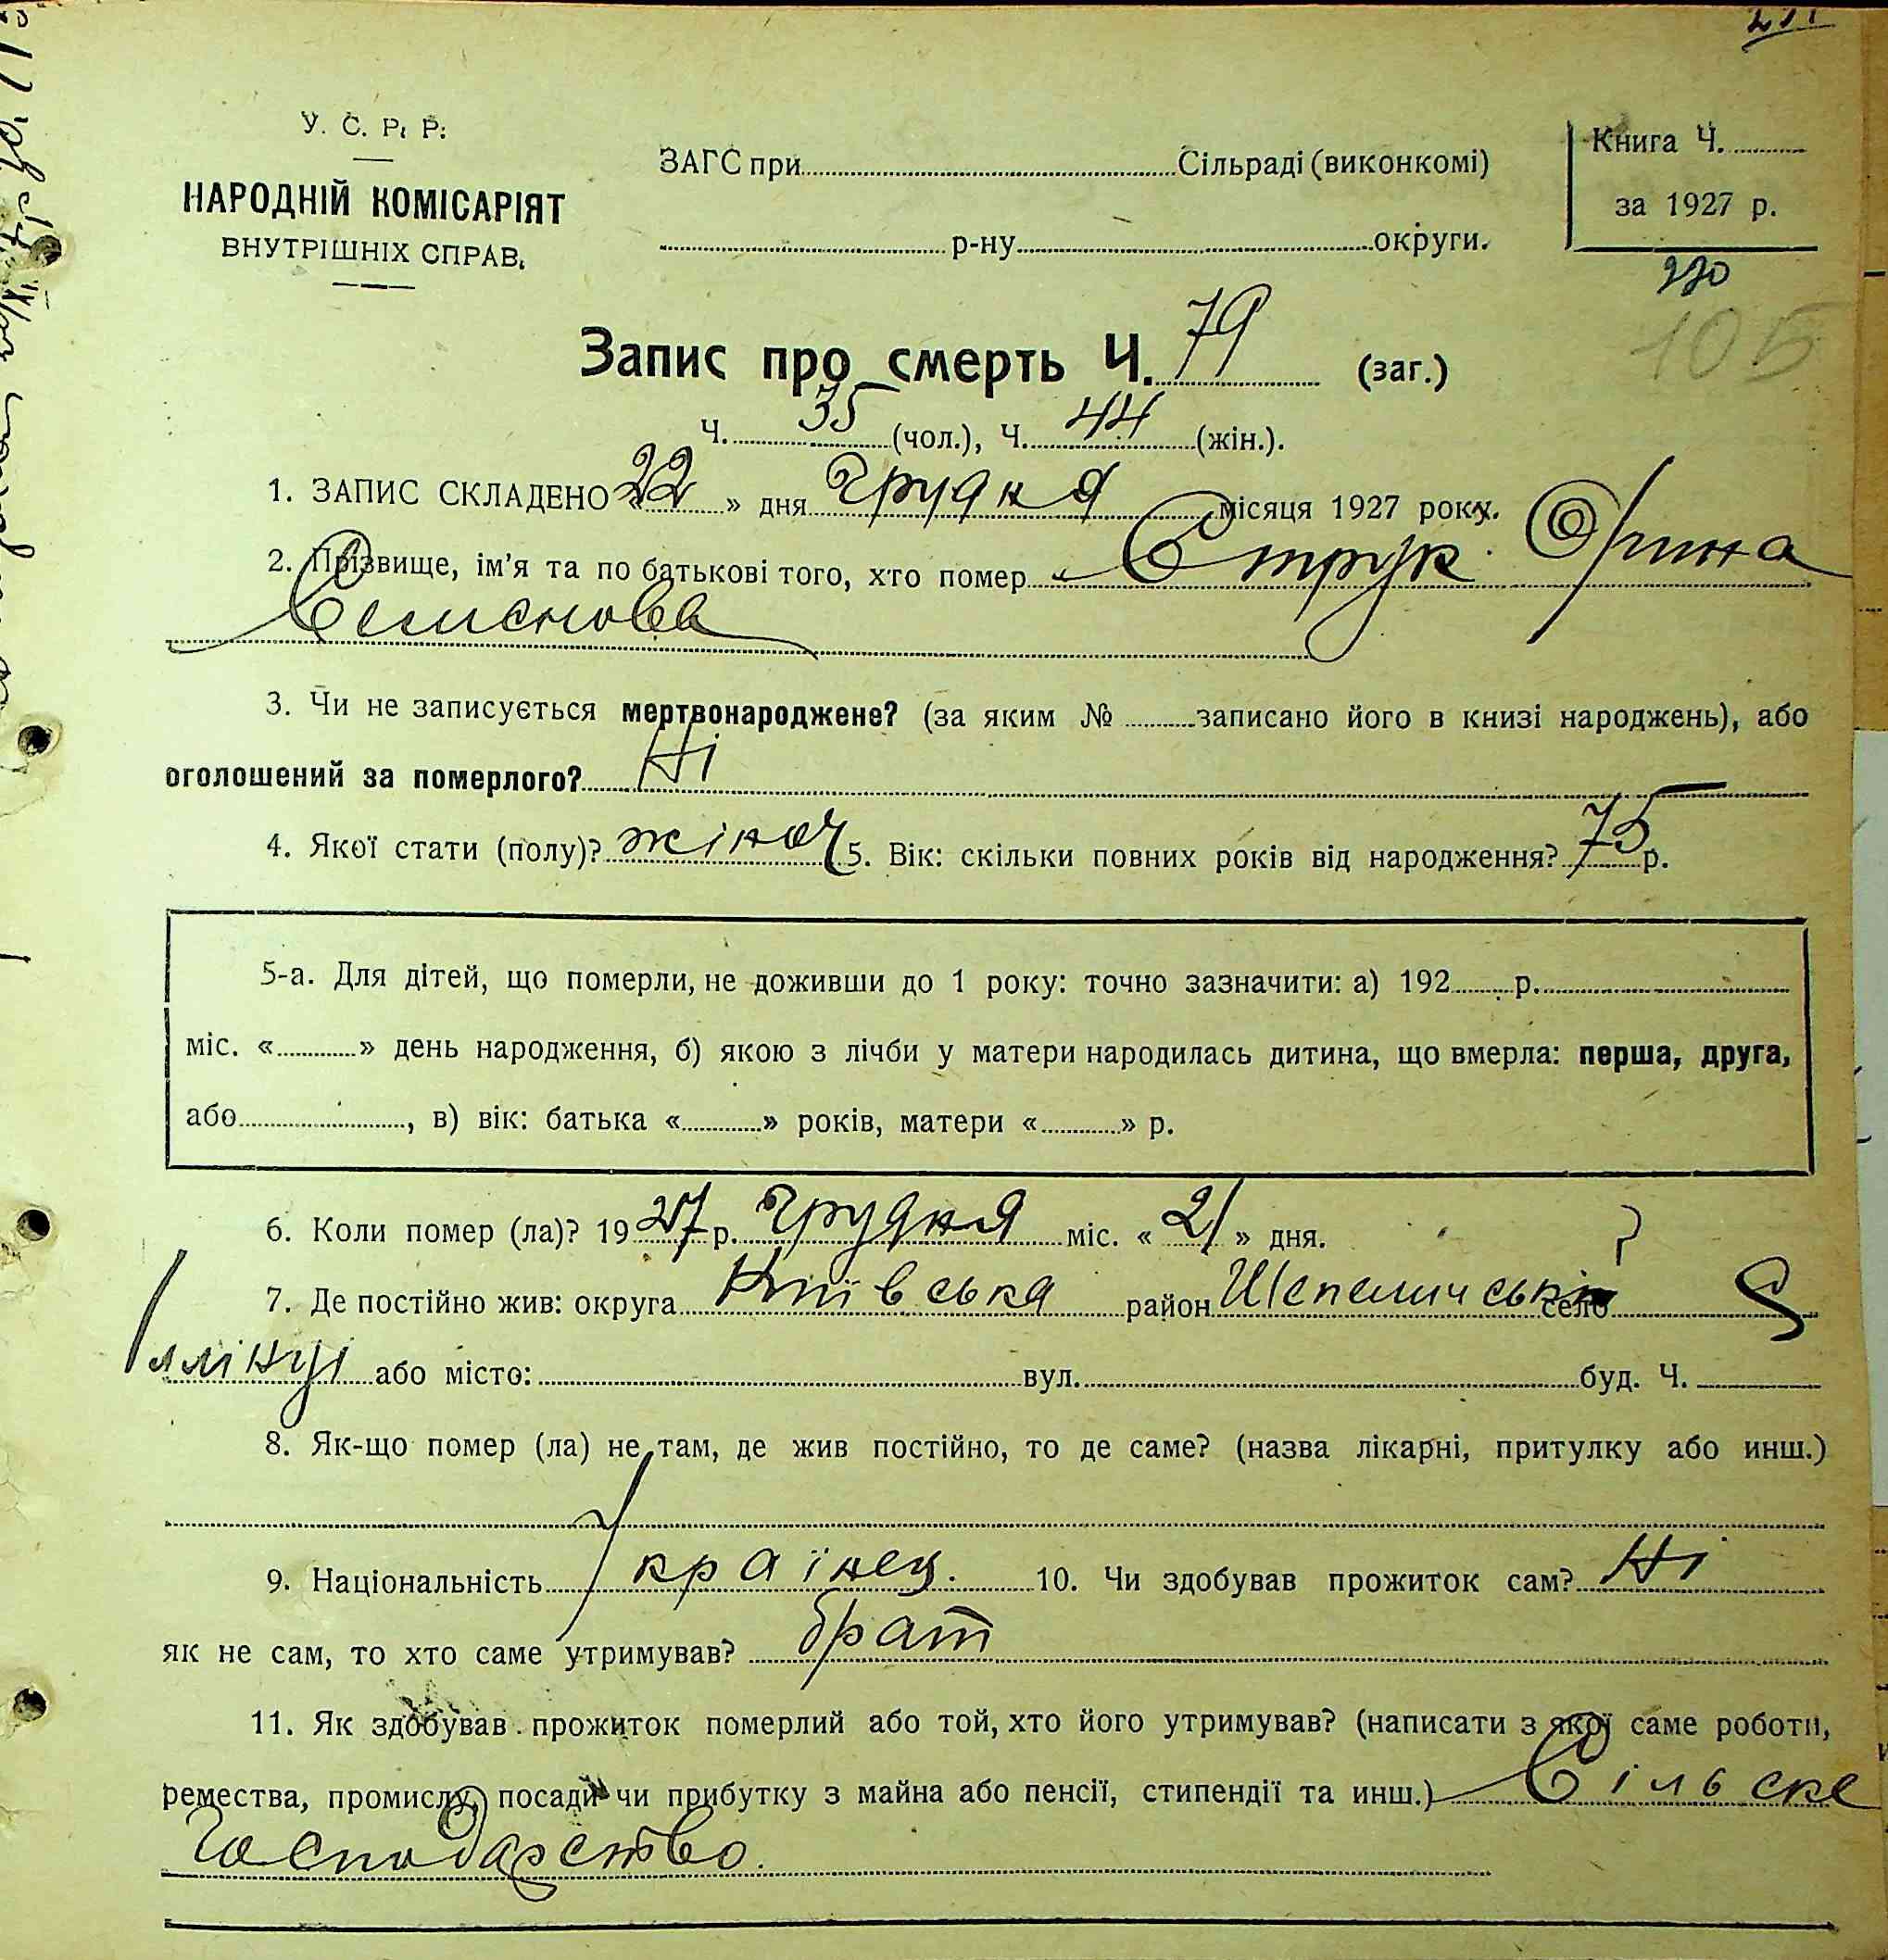 У. С. Р. Р.
НАРОДНІЙ КОМІСАРІЯТ
ВНУТРІШНІХ СПРАВ.
ЗАГС при Сільраді (виконкомі)
р-ну округи.
Книга Ч.
за 1927 р.
220
105
Запис про смерть Ч. 79 (заг.)
Ч. 35 (чол.), Ч. 44 (жін.).
1. ЗАПИС СКЛАДЕНО «22» дня Грудня місяця 1927 року.
2. Прізвище, ім'я та по батькові того, хто помер Струк Орина
Семенова
3. Чи не записується мертвонароджене? (за яким № записано його в книзі народжень), або
оголошений за померлого? Ні
4. Якої стати (полу)? жіноч 5. Вік: скільки повних років від народження? 75 р.
5-а. Для дітей, що померли, не доживши до 1 року: точно зазначити: а) 192 р.
міс. « » день народження, б) якою з лічби у матери народилась дитина, що вмерла: перша, друга,
або , в) вік: батька « » років, матери « » р.
6. Коли помер (ла)? 1927 р. Грудня міс. «21» дня.
7. Де постійно жив: округа Київська район Шепелицьк село
Іллінці або місто: вул. буд. Ч.
8. Як-що помер (ла) не там, де жив постійно, то де саме? (назва лікарні, притулку або инш.)
9. Національність Українец. 10. Чи здобував прожиток сам? Ні
як не сам, то хто саме утримував? брат
11. Як здобував прожиток померлий або той, хто його утримував? (написати з якої саме роботи,
ремества, промислу, посади чи прибутку з майна або пенсії, стипендії та инш.) Сільске
Господарство.